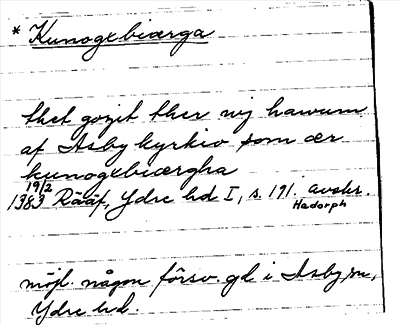 * Kunogxbiærga
thet gozit ther wj hawum
af Asby kyrkio som ær
kunogxbiærgha
19/2
1383 Rääf, Ydre hd I, s. 191. avskr.
Hadorph
möjl. någon försv. gd i Asby sn,
Ydre hd.